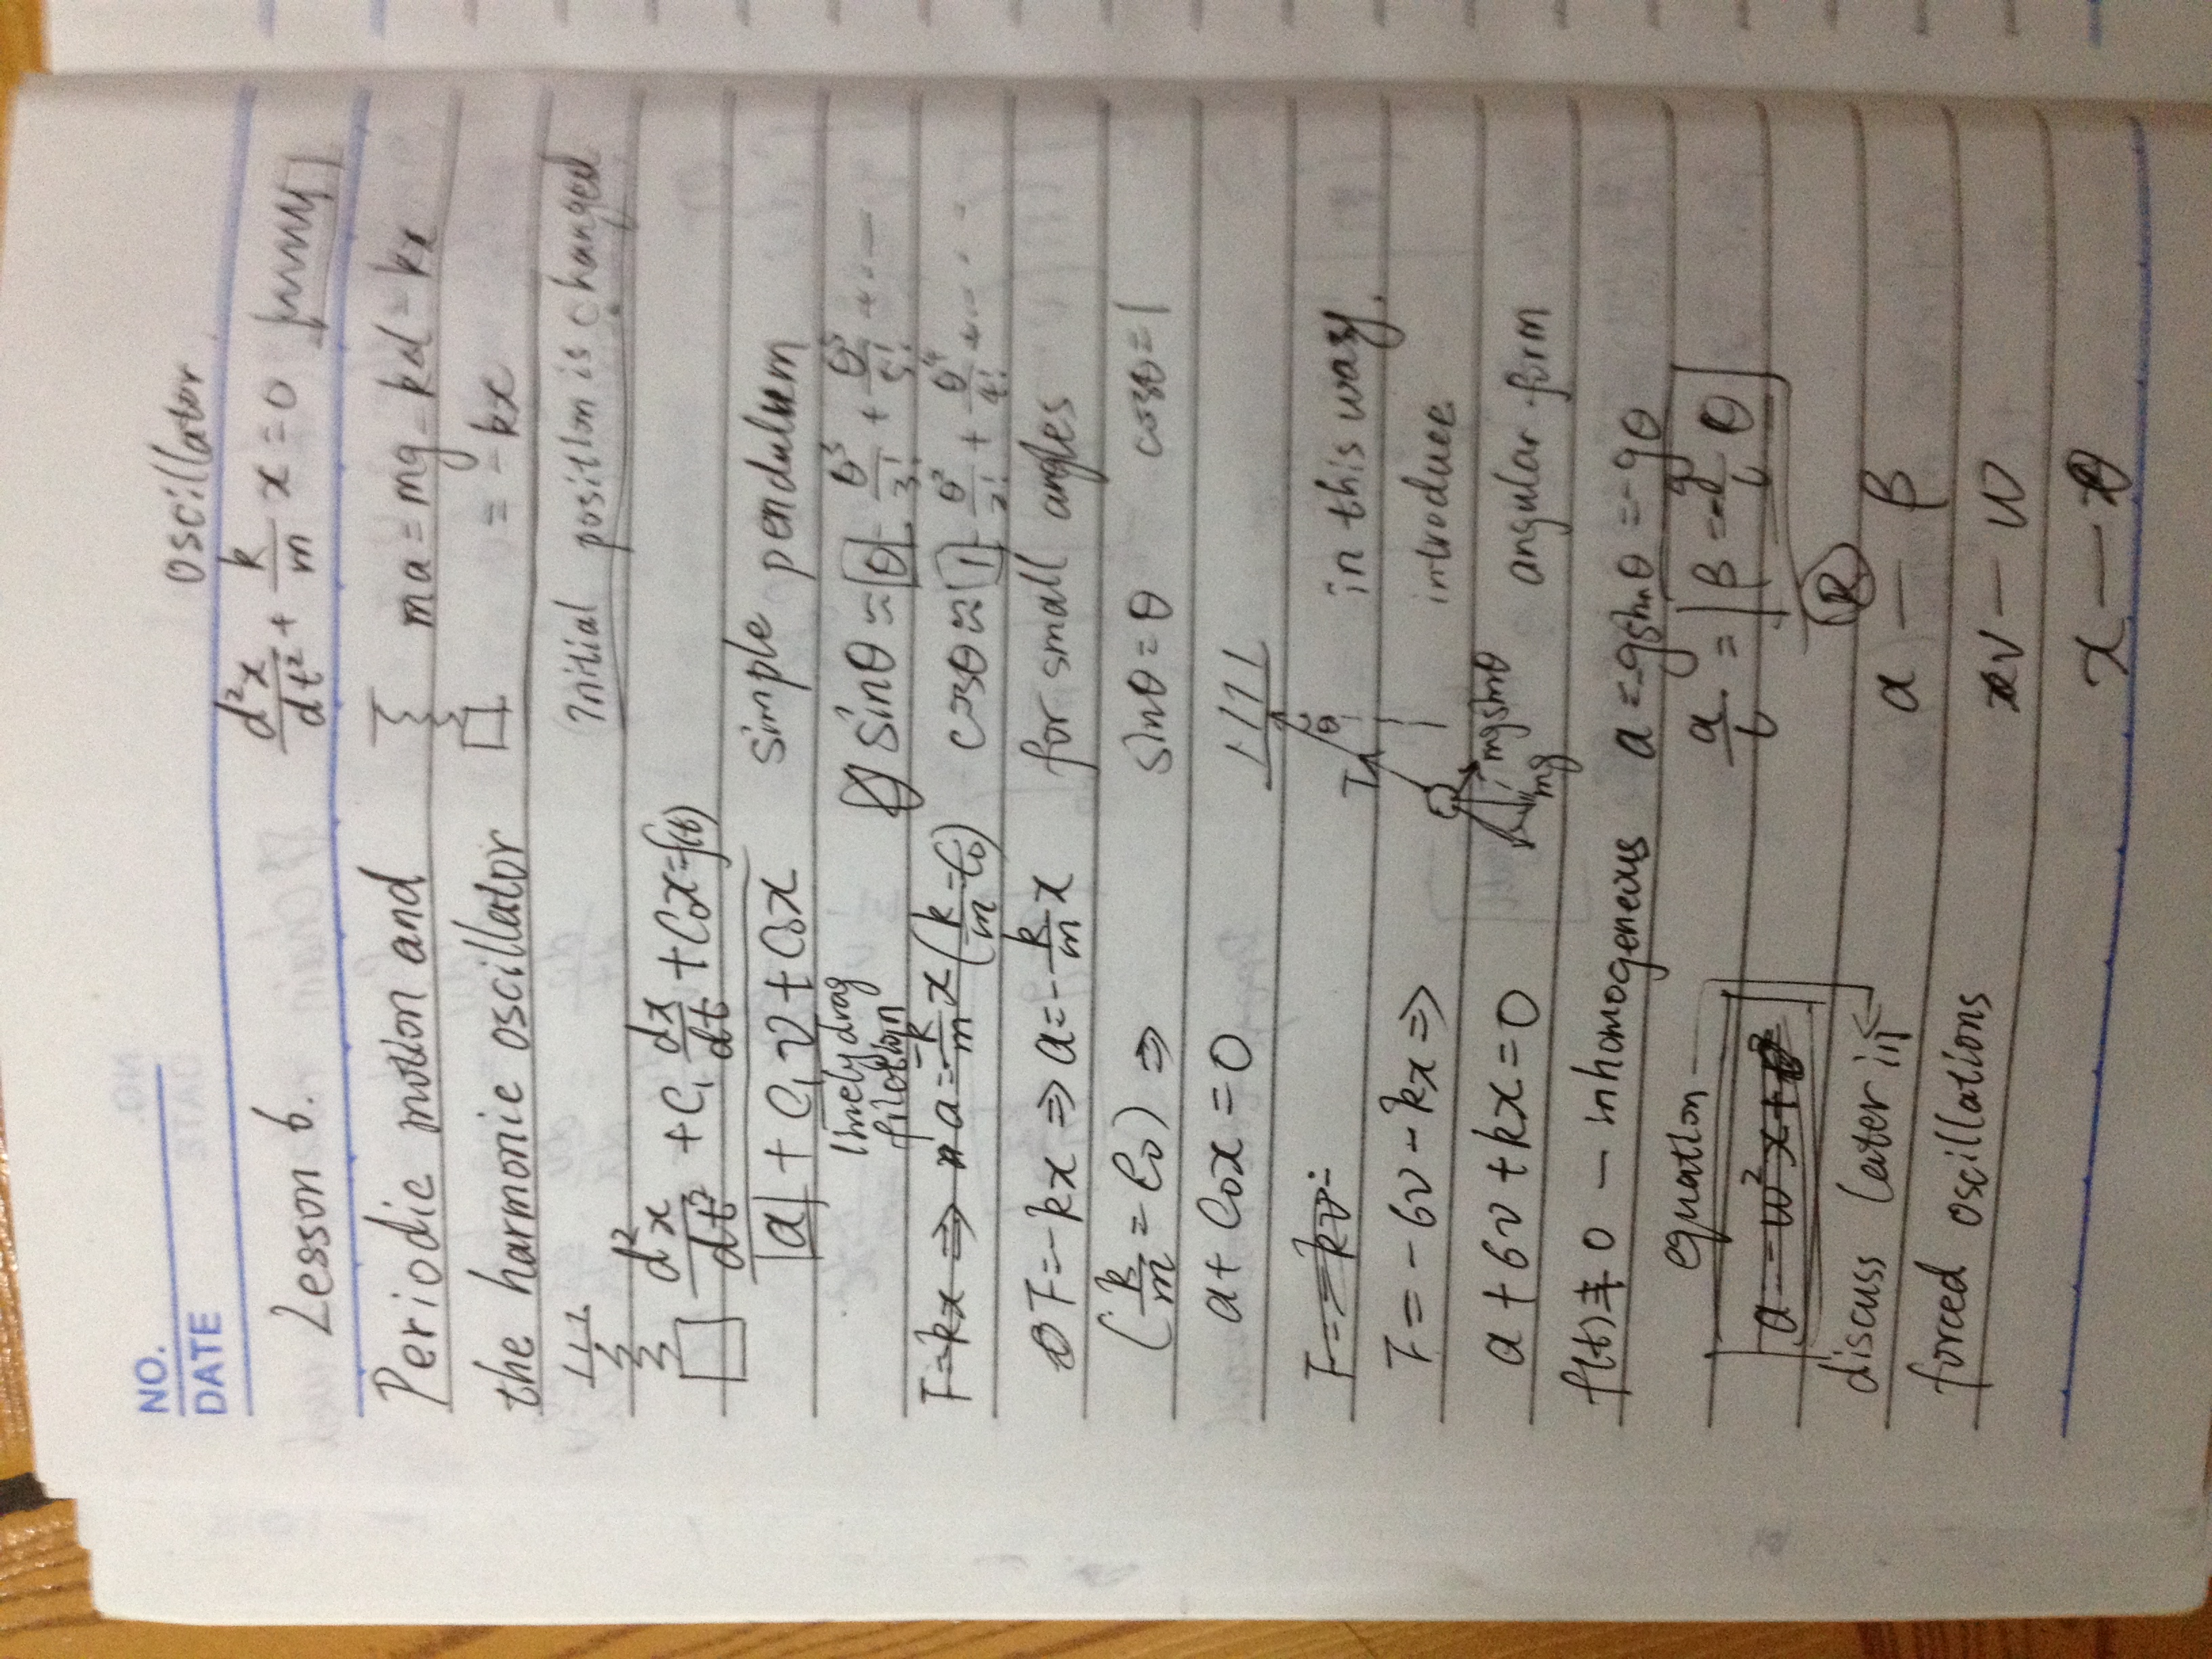 NO.
DATE
Lesson 6.
Periodic motion and
the harmonic oscillator
d²x/dt² + C₁ dx/dt + C₀x = f(t)
a + C₁v + C₀x
drag
F=kx ⇒ a = -k/m x (k/m = C₀)
F = -kx ⇒ a = -k/m x
(k/m = C₀) ⇒
a + C₀x = 0
F = -kv
F = -6v - kx ⇒
a + 6v + kx = 0
f(t) ≠ 0 — inhomogeneous
equation
a = -w²x +
discuss later in
forced oscillations
oscillator
d²x/dt² + k/m x = 0
ma = mg - kd - kx
= -kx
Initial position is changed
simple pendulum
sinθ ≈ θ - θ³/3! + θ⁵/5! + ...
cosθ ≈ 1 - θ²/2! + θ⁴/4! + ...
for small angles
sinθ = θ cosθ = 1
θ
T
mgsinθ
mg
in this way,
introduce
angular form
a = -gsinθ = -gθ
a/l = β = -g/l θ
R
a — β
v — w
x — θ